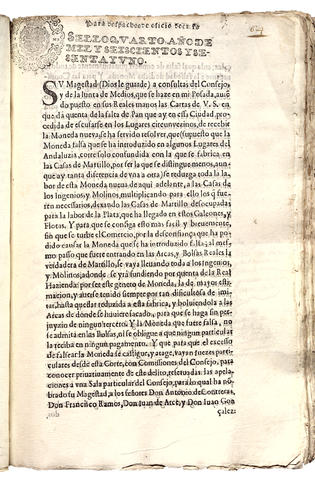 Para despachos de oficio dos ms
624
SELLO QVARTO, AÑO DE
MIL Y SEISCIENTOS Y SE-
SENTA Y VNO.
SV Magestad (Dios le guarde) a consultas del Consejo,
y de la Iunta de Medios, que se haze en mi Posada, auiẽ
do puesto en sus Reales manos las Cartas de V. S. en
que dà quenta de la falta de Pan que ay en essa Ciudad, pro-
cedida de escusarse en los Lugares circunvezinos, de recebir
la Moneda nueva, se ha servido resolver, que (supuesto que la
Moneda falsa que se ha introducido en algunos Lugares del
Andaluzia, corre solo confundida con la que se fabrica en
las Casas de Martillo, por ser la que se distingue menos, aun-
que ay tanta diferencia de vna a otra) se reduzga toda la la-
bor de esta Moneda nueva de aqui adelante, a las Casas de
los Ingenios, y Molinos, multiplicando para ello los q̃ fue-
ren necessarios, dexando las Casas de Martillo desocupadas
para la labor de la Plata, que ha llegado en estos Galeones, y
Flotas. Y para que se consiga esto mas facil, y brevemente,
sin que se turbe el Comercio, por la desconfiança que ha po-
dido causar la Moneda que se ha introducido falsa, al mes-
mo passo que fuere entrando en las Arcas, y Bolsas Reales la
verdadera de Martillo, se vaya llevando toda a los Ingenios,
y Molinos, adonde se yrà fundiendo por quenta de la Real
Hazienda: por ser este genero de Moneda, la de mayor esti-
macion, y averse tenido siempre por tan dificultosa de imi-
tar, hasta quedar reduzida a essa fabrica, y bolviendola a las
Arcas de dõnde se huviere sacado, para que se haga sin per-
juyzio de ningun tercero. Y la Moneda que fuere falsa, no
se admita en las Bolsas, ni se obligue a que ningun particular
la reciba en ningun pagamento. Y que para que el excesso
de falsear la Moneda se castigue, y ataje, vayan Iuezes parti-
culares desde esta Corte, con Comissiones del Consejo, para
conocer privativamente de este delito, reservadas las apela-
ciones a vna Sala particular del Consejo, para lo qual ha nõ-
brado su Magestad, a los señores Don Antonio de Contreras,
Don Francisco Ramos, Don Iuan de Arce, y Don Iuan Gon
çalez: